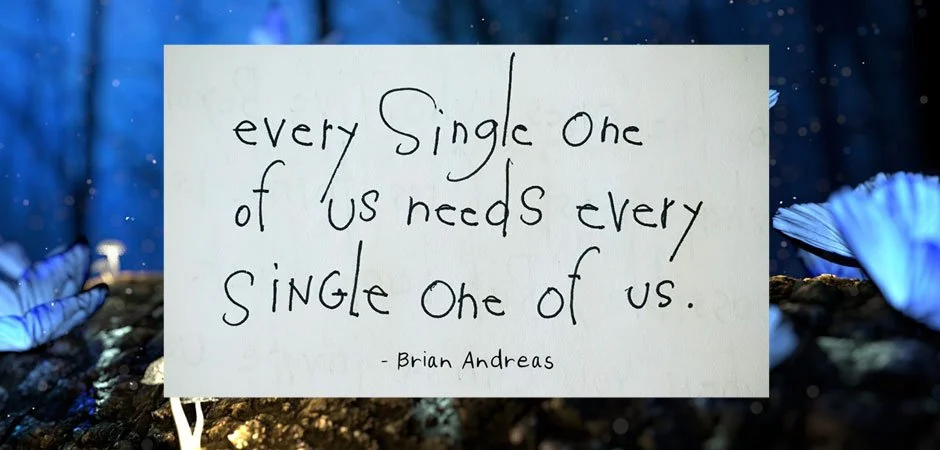 every Single One
of us needs every
SiNGle One of us.
- Brian Andreas